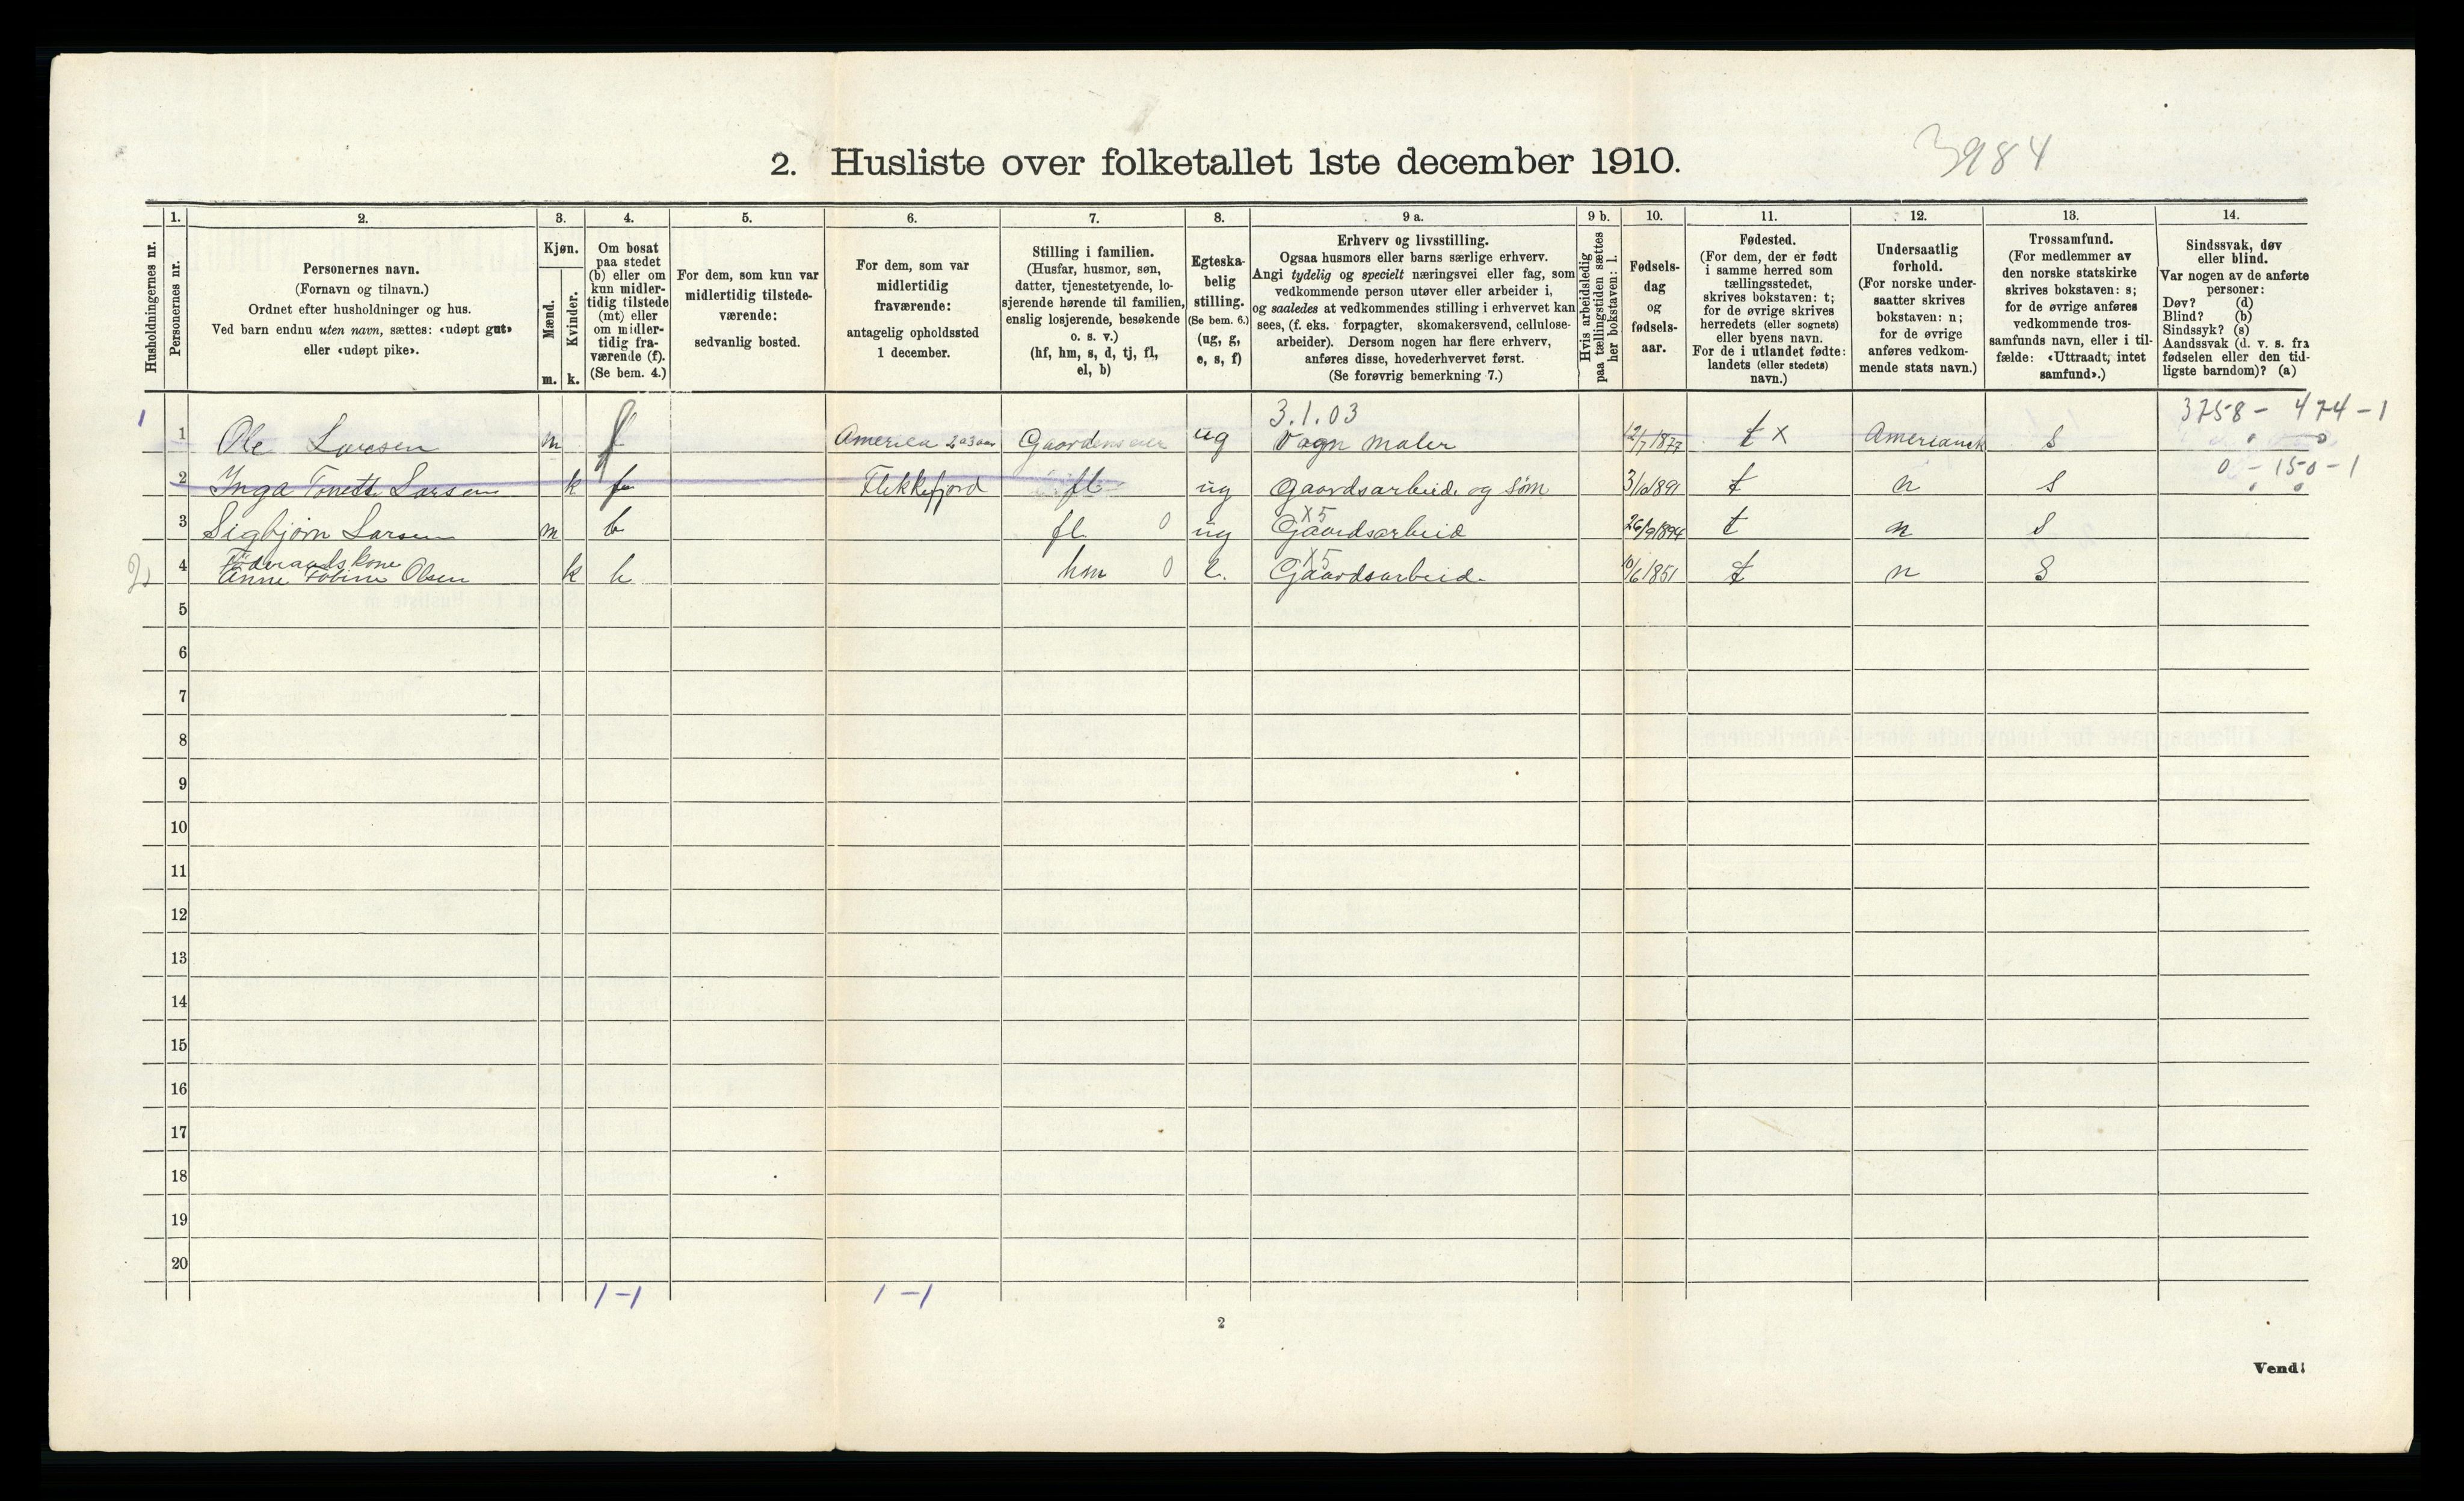 3984
2. Husliste over folketallet 1ste december 1910.
Husholdningernes nr.
1. Personernes nr.
2. Personernes navn.
(Fornavn og tilnavn.)
Ordnet efter husholdninger og hus.
Ved barn endnu uten navn, sættes: «udøpt gut»
eller «udøpt pike».
3. Kjøn.
Mænd. m.
Kvinder. k.
4. Om bosat
paa stedet
(b) eller om
kun midler-
tidig tilstede
(mt) eller
om midler-
tidig fra-
værende (f).
(Se bem. 4.)
5. For dem, som kun var
midlertidig tilstede-
værende:
sedvanlig bosted.
6. For dem, som var
midlertidig
fraværende:
antagelig opholdssted
1 december.
7. Stilling i familien.
(Husfar, husmor, søn,
datter, tjenestetyende, lo-
sjerende hørende til familien,
enslig losjerende, besøkende
o. s. v.)
(hf, hm, s, d, tj, fl,
el, b)
8. Egteska-
belig
stilling.
(Se bem. 6.)
(ug, g,
e, s, f)
9 a. Erhverv og livsstilling.
Ogsaa husmors eller barns særlige erhverv.
Angi tydelig og specielt næringsvei eller fag, som
vedkommende person utøver eller arbeider i,
og saaledes at vedkommendes stilling i erhvervet kan
sees, (f. eks. forpagter, skomakersvend, cellulose-
arbeider). Dersom nogen har flere erhverv,
anføres disse, hovederhvervet først.
(Se forøvrig bemerkning 7.)
9 b. Hvis arbeidsledig
paa tællingstiden sættes
her bokstaven: l.
10. Fødsels-
dag
og
fødsels-
aar.
11. Fødested.
(For dem, der er født
i samme herred som
tællingsstedet,
skrives bokstaven: t;
for de øvrige skrives
herredets (eller sognets)
eller byens navn.
For de i utlandet fødte:
landets (eller stedets)
navn.)
12. Undersaatlig
forhold.
(For norske under-
saatter skrives
bokstaven: n;
for de øvrige
anføres vedkom-
mende stats navn.)
13. Trossamfund.
(For medlemmer av
den norske statskirke
skrives bokstaven: s;
for de øvrige anføres
vedkommende tros-
samfunds navn, eller i til-
fælde: «Uttraadt, intet
samfund».)
14. Sindssvak, døv
eller blind.
Var nogen av de anførte
personer:
Døv? (d)
Blind? (b)
Sindssyk? (s)
Aandssvak (d. v. s. fra
fødselen eller den tid-
ligste barndom)? (a)
3.1.03 3758 - 474 - 1
1 1 Ole Larsen m f America 2 a 3 aar Gaardens eier ug Vogn maler 12/7 1877 t X S
0 - 150 - 1
2 Inga Larsen k f Flekkefjord fl ug Gaardsarbeid. og Söm t n S
X5
3 Sigbjørn Larsen m b fl 0 ug Gaardsarbeid 26/9 1894 t n S
Föderaads kone X5
2 4 Anne Tobine Olsen k b hm 0 e. Gaardsarbeid. 10/6 1851 t n S
5
6
7
8
9
10
11
12
13
14
15
16
17
18
19
20
1 - 1 1 - 1
2
Vend!